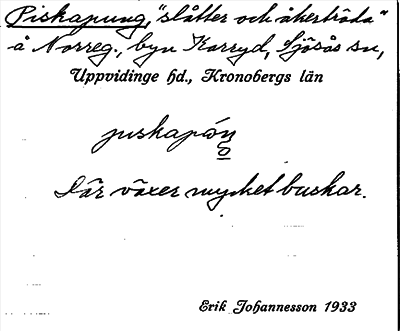 Piskapung, "slåtter och åkerträda"
å Norreg., byn Karryd, Sjösås sn,
Uppvidinge hd., Kronobergs län
Där växer mycket buskar.
Erik Johannesson 1933